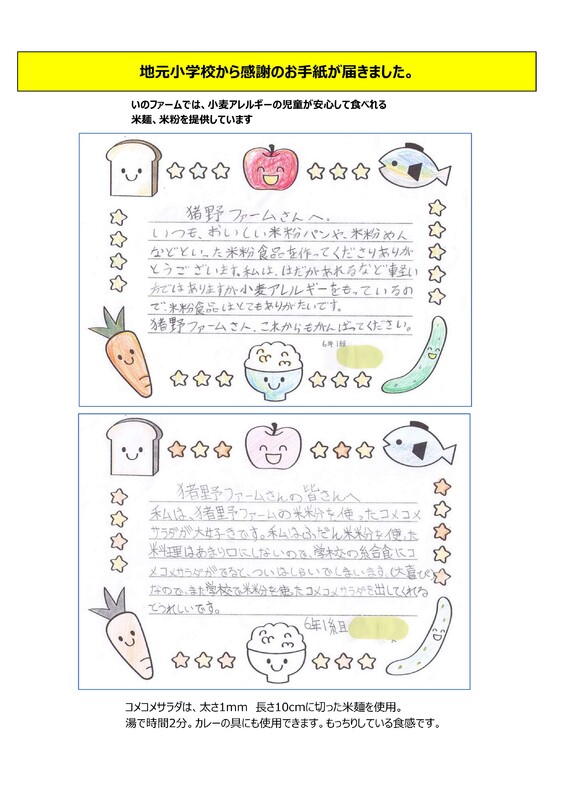 地元小学校から感謝のお手紙が届きました。
いのファームでは、小麦アレルギーの児童が安心して食べれる
米麺、米粉を提供しています
猪野ファームさんへ。
いつも、おいしい米粉パンや、米粉めん
などといった米粉食品を作ってくださりありが
とうございます。私は、はだがあれるなど軽い
方ではありますが小麦アレルギーをもっているの
で、米粉食品はとてもありがたいです。
猪野ファームさん、これからもがんばってください。
6年1組
猪野ファームさんの皆さんへ
私は、猪野ファームの米粉を使ったコメコメ
サラダが大好きです。私はふだん米粉を使った
料理はあまり口にしないので、学校の給食にコ
メコメサラダがでると、ついはしゃいでしまいます。(大喜び)
なので、また学校で米粉を使ったコメコメサラダを出してくれる
とうれしいです。
6年1組
コメコメサラダは、太さ1mm 長さ10cmに切った米麺を使用。
湯で時間2分。カレーの具にも使用できます。もっちりしている食感です。